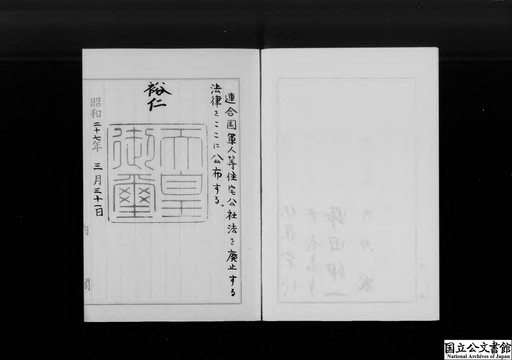 連合国軍人等住宅公社法を廃止する
法律をここに公布する。
裕仁
天皇
御璽
昭和二十七年 三月三十一日
内閣
国立公文書館
National Archives of Japan